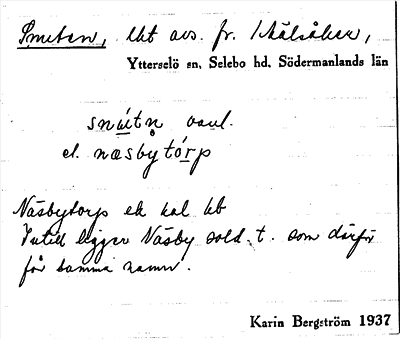 Smeten, lht avs. fr. Skälsåker,
Ytterselö sn, Selebo hd, Södermanlands län
el. næsbytórp
Näsbytorp ek kal lht
Intill ligger Näsby sold. t. som därför
får samma namn.
Karin Bergström 1937